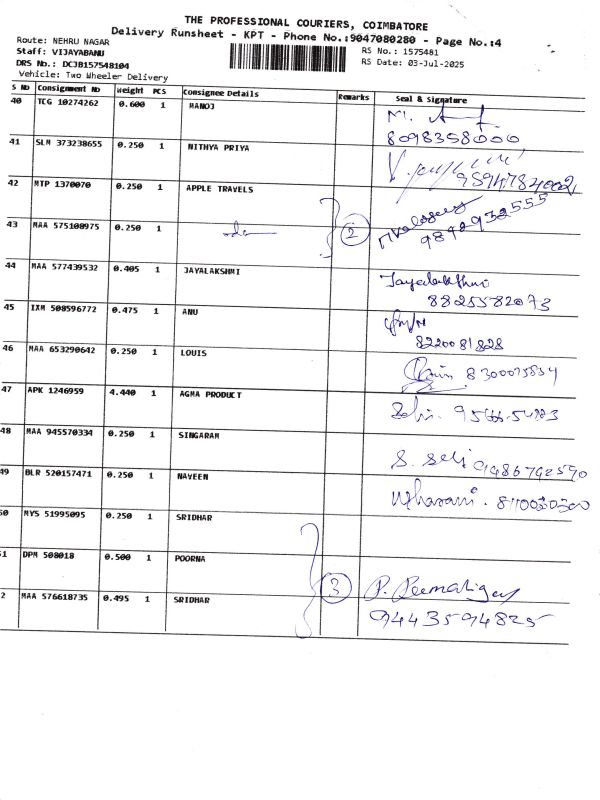 THE PROFESSIONAL COURIERS, COIMBATORE
Delivery Runsheet - KPT - Phone No.:9047080280 - Page No.:4
Route: NEHRU NAGAR
Staff: VIJAYABANU
DRS No.: DCJB157548104
Vehicle: Two Wheeler Delivery
RS No.: 1575481
RS Date: 03-Jul-2025
S No Consignment No Weight PCS Consignee Details Remarks Seal & Signature
40 TCG 10274262 0.600 1 MANOJ
8098358000
41 SLM 373238655 0.250 1 NITHYA PRIYA
9594784002
42 MTP 1370070 0.250 1 APPLE TRAVELS
43 MAA 575108975 0.250 1 2
9892932555
44 MAA 577439532 0.405 1 JAYALAKSHMI Jayalakshmi
8825582073
45 IXM 508596772 0.475 1 ANU
8220081828
46 MAA 653290642 0.250 1 LOUIS
47 APK 1246959 4.440 1 AGMA PRODUCT
48 MAA 945570334 0.250 1 SINGARAM
9486792590
49 BLR 520157471 0.250 1 NAVEEN
50 MYS 51995095 0.250 1 SRIDHAR
51 DPM 508018 0.500 1 POORNA 3
2 MAA 576618735 0.495 1 SRIDHAR
9443594825